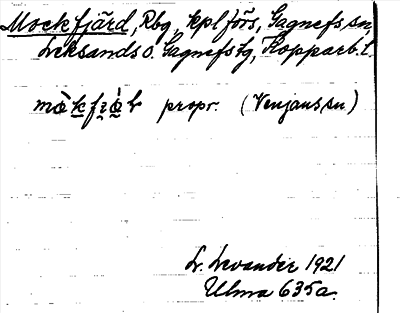 Mockfjärd, Rbg, kplförs, Gagnefs sn,
Leksands o. Gagnefs tg, Kopparb. l.
propr. (Venjans sn)
L. Levander 1921
Ulma 635a.